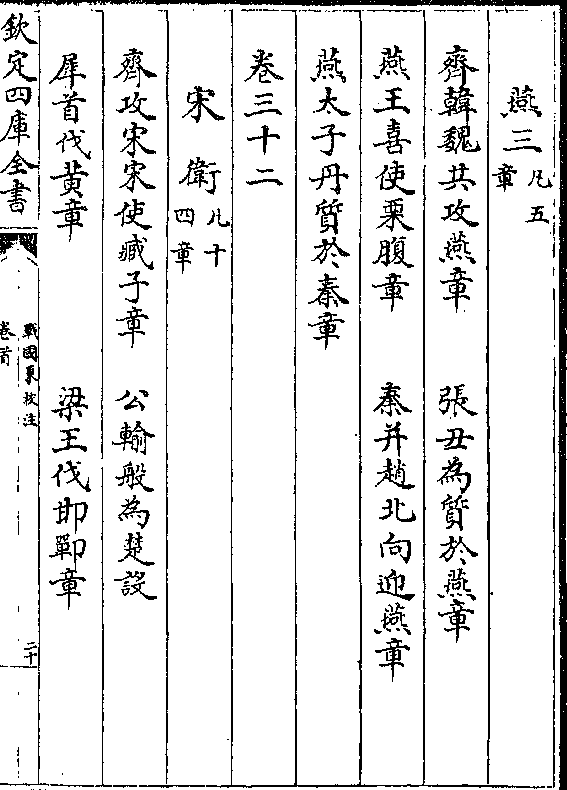 燕三 凡五章
齊韓魏共攻燕章 張丑為質於燕章
燕王喜使栗腹章 秦并趙北向迎燕章
燕太子丹質於秦章
卷三十二
宋衛 凡十四章
齊攻宋宋使臧子章 公輸般為楚設
犀首伐黄章 梁王伐邯鄲章
欽定四庫全書
戰國策校注
卷首
二十